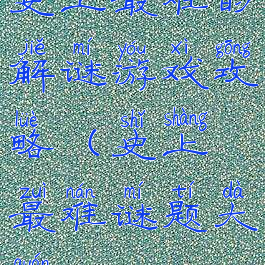 史上最难的
jiě mí yóu xì gōng
解谜游戏攻
lüè shǐ shàng
略（史上
zuì nán mí tí dà
最难谜题大
quán